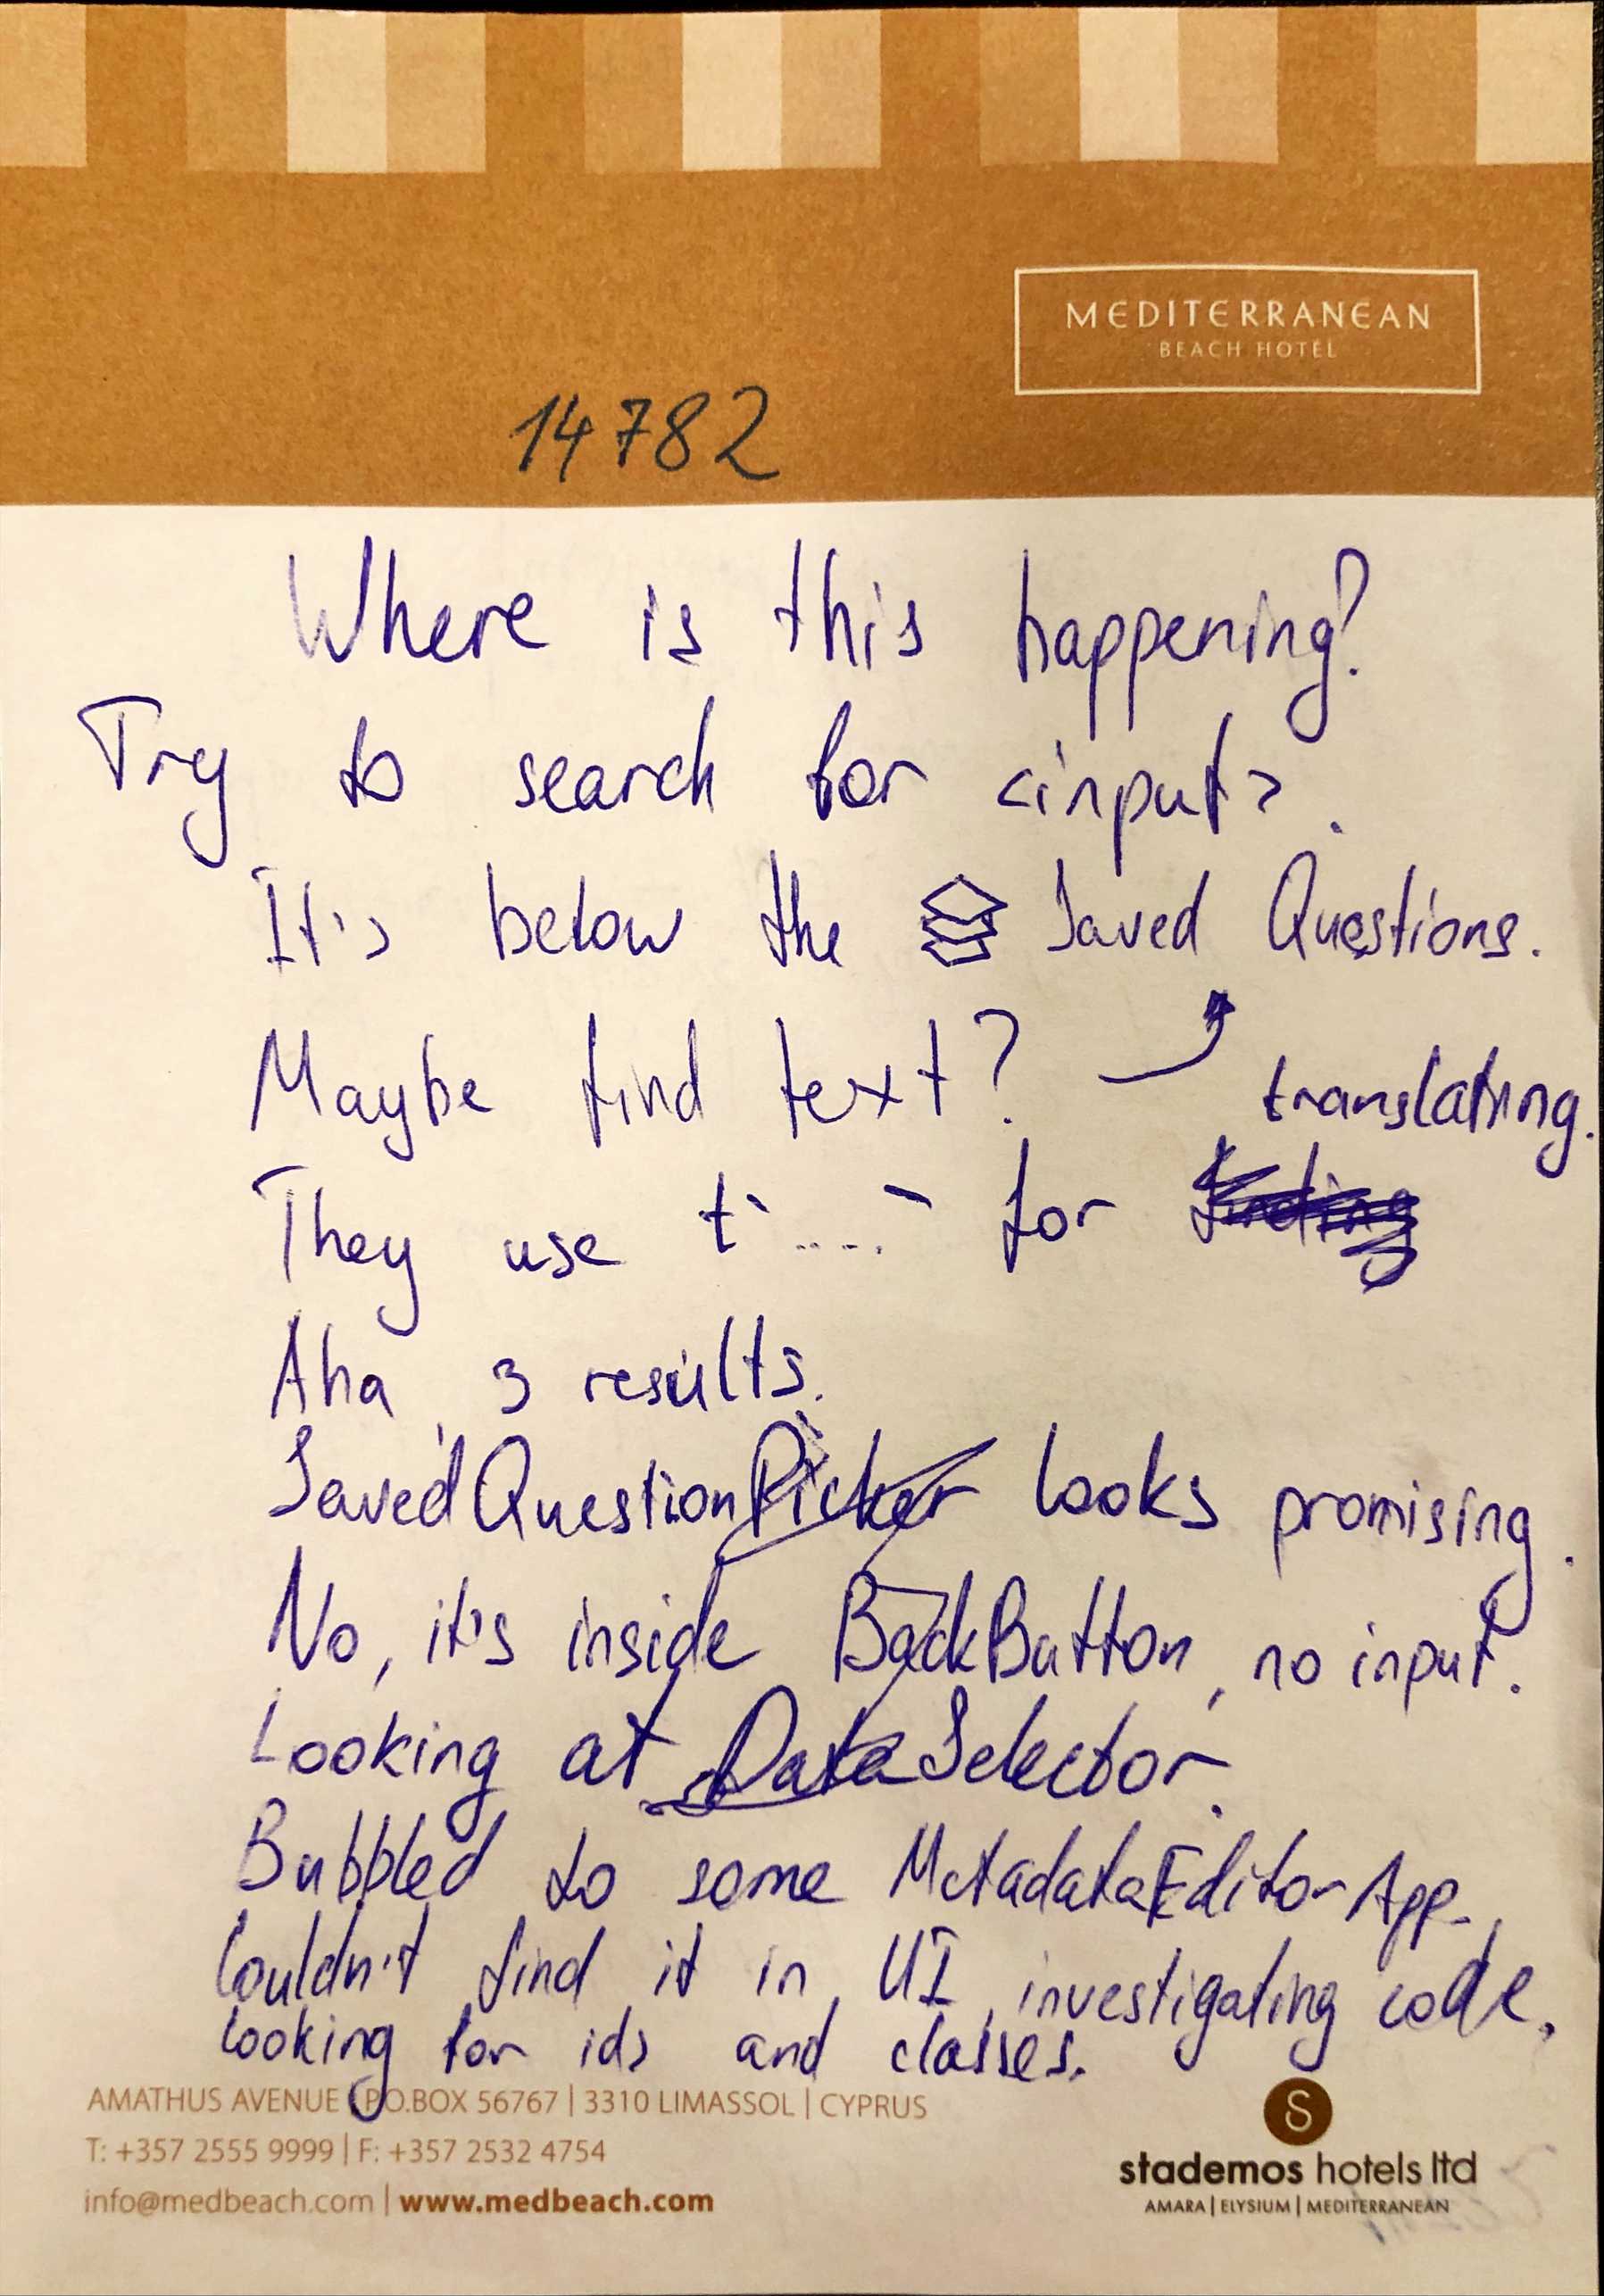 MEDITERRANEAN
BEACH HOTEL
14782
Where is this happening?
Try to search for <input>.
It's below the Saved Questions.
Maybe find text?
translating.
They use t`.....` for
Aha, 3 results.
SavedQuestionPicker looks promising.
No, it's inside BackButton, no input.
Looking at DataSelector.
Bubbled to some MetadataEditorApp.
Couldn't find it in UI, investigating code,
looking for ids and classes.
AMATHUS AVENUE | P.O.BOX 56767 | 3310 LIMASSOL | CYPRUS
T: +357 2555 9999 | F: +357 2532 4754
info@medbeach.com | www.medbeach.com
S
stademos hotels ltd
AMARA | ELYSIUM | MEDITERRANEAN